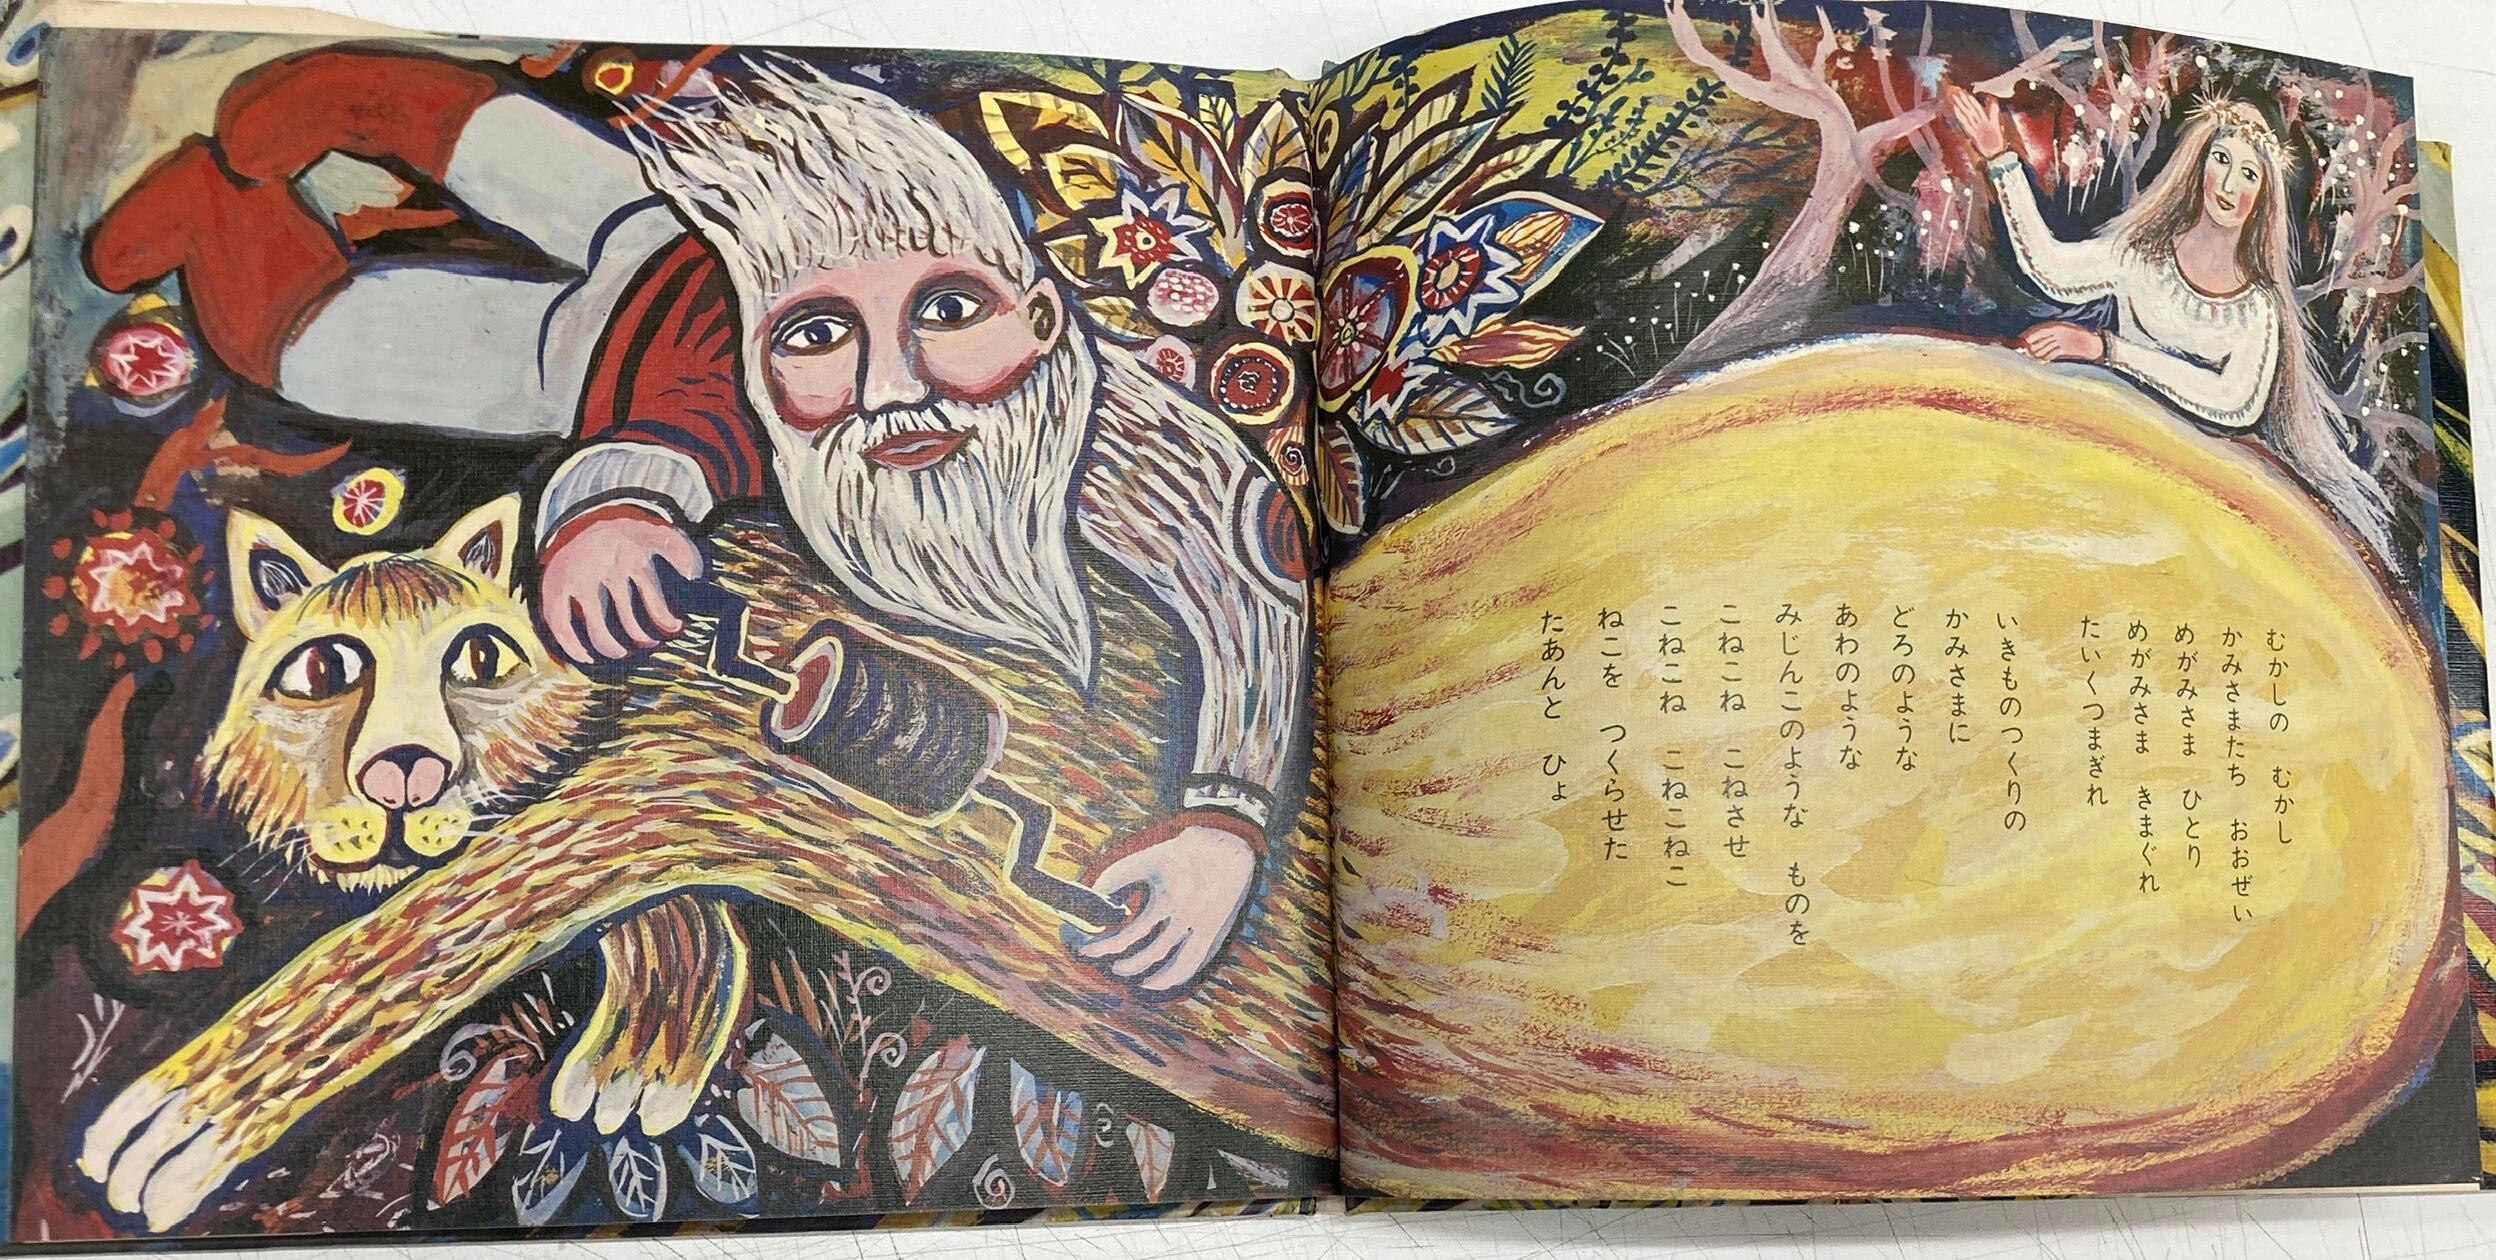 むかしの　むかし
かみさまたち　おおぜい
めがみさま　ひとり
めがみさま　きまぐれ
たいくつまぎれ
いきものつくりの
かみさまに
どろのような
あわのような
みじんこのような　ものを
こねこね　こねさせ
こねこね　こねこねこ
ねこを　つくらせた
たあんと　ひょ